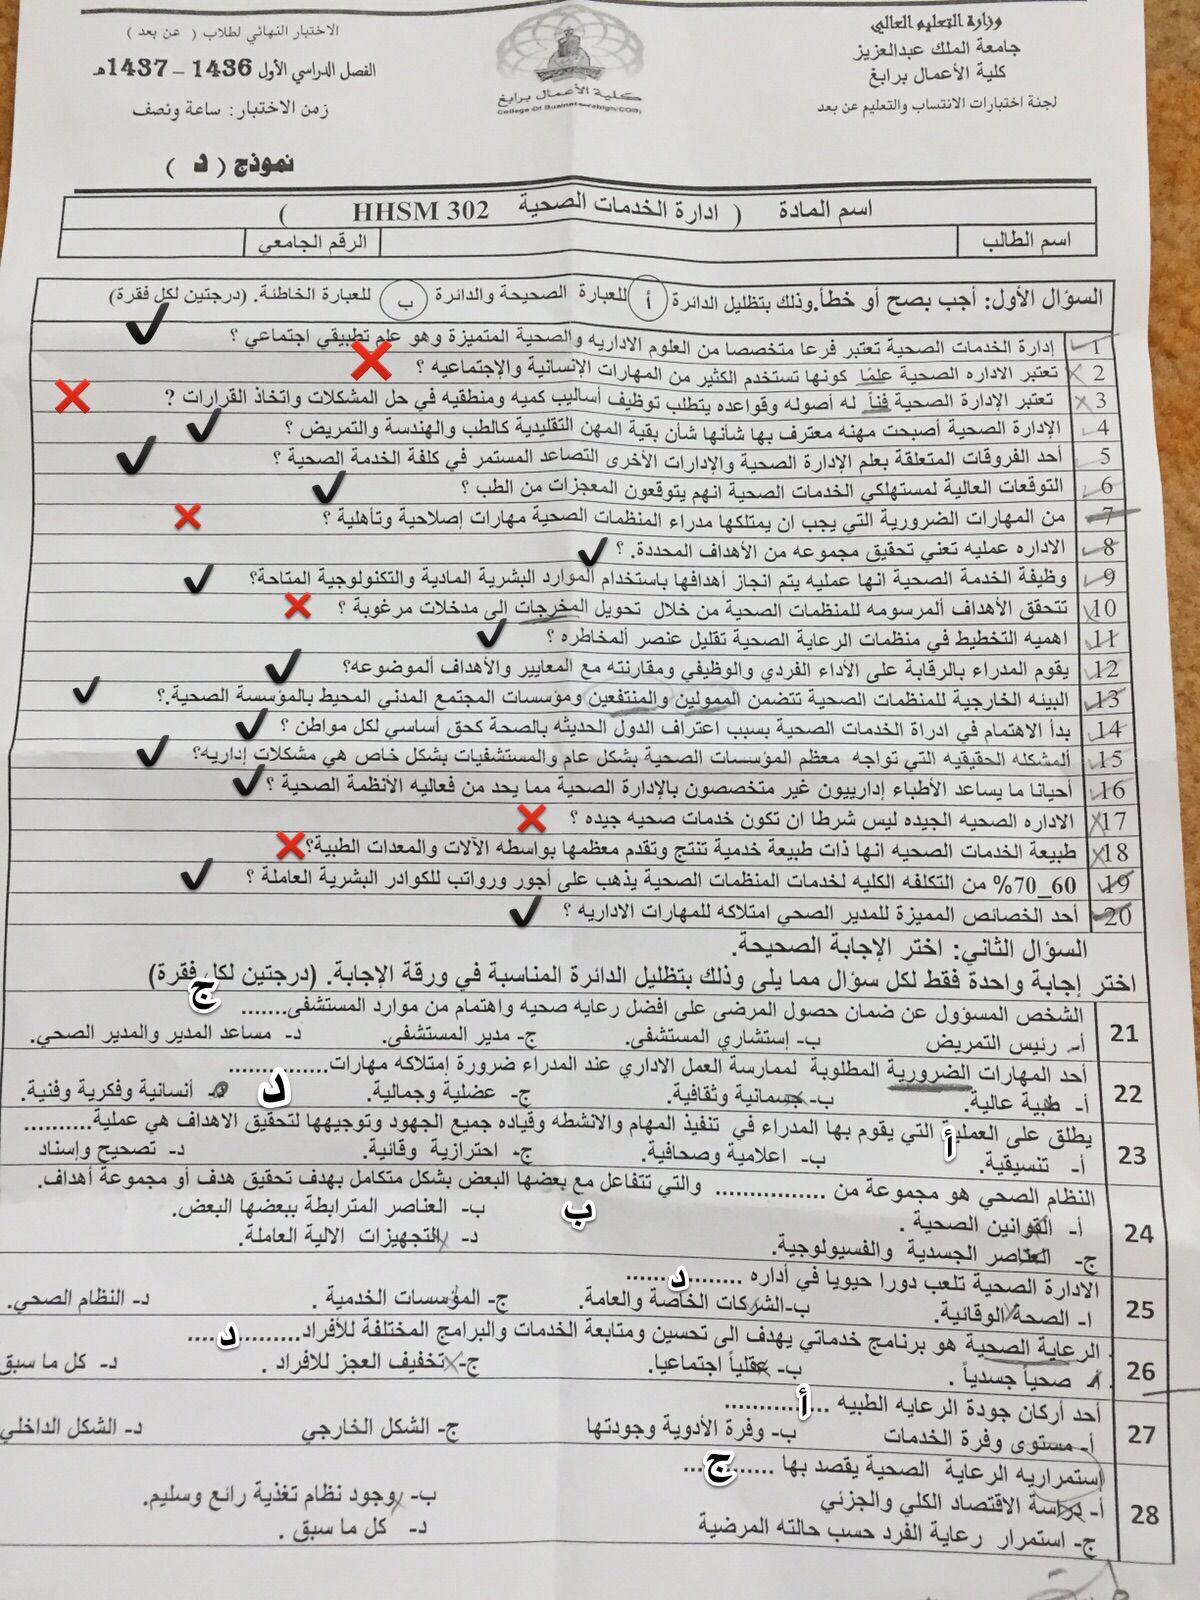 وزارة التعليم العالي
جامعة الملك عبدالعزيز
كلية الأعمال برابغ
لجنة اختبارات الانتساب والتعليم عن بعد
كلية الأعمال برابغ
الاختبار النهائي لطلاب ( عن بعد )
الفصل الدراسي الأول 1436 – 1437هـ
زمن الاختبار: ساعة ونصف
نموذج ( د )
اسم المادة ( ادارة الخدمات الصحية HHSM 302 )
اسم الطالب
الرقم الجامعي
السؤال الأول: أجب بصح أو خطأ.وذلك بتظليل الدائرة أ للعبارة الصحيحة والدائرة ب للعبارة الخاطئة. (درجتين لكل فقرة)
1 إدارة الخدمات الصحية تعتبر فرعا متخصصا من العلوم الاداريه والصحية المتميزة وهو علم تطبيقي اجتماعي ؟ ✔
2 تعتبر الاداره الصحية علمًا كونها تستخدم الكثير من المهارات الإنسانية والإجتماعيه ؟ ❌
3 تعتبر الإدارة الصحية فناً له أصوله وقواعده يتطلب توظيف أساليب كميه ومنطقيه في حل المشكلات واتخاذ القرارات ? ❌
4 الإدارة الصحية أصبحت مهنه معترف بها شأنها شأن بقية المهن التقليدية كالطب والهندسة والتمريض ؟ ✔
5 أحد الفروقات المتعلقة بعلم الإدارة الصحية والإدارات الأخرى التصاعد المستمر في كلفة الخدمة الصحية ؟ ✔
6 التوقعات العالية لمستهلكي الخدمات الصحية انهم يتوقعون المعجزات من الطب ؟ ✔
7 من المهارات الضرورية التي يجب ان يمتلكها مدراء المنظمات الصحية مهارات إصلاحية وتأهلية ؟ ❌
8 الاداره عمليه تعني تحقيق مجموعه من الأهداف المحددة. ؟ ✔
9 وظيفة الخدمة الصحية انها عمليه يتم انجاز أهدافها باستخدام الموارد البشرية المادية والتكنولوجية المتاحة؟ ✔
10 تتحقق الأهداف ألمرسومه للمنظمات الصحية من خلال تحويل المخرجات الى مدخلات مرغوبة ؟ ❌
11 اهميه التخطيط في منظمات الرعاية الصحية تقليل عنصر ألمخاطره ؟ ✔
12 يقوم المدراء بالرقابة على الأداء الفردي والوظيفي ومقارنته مع المعايير والأهداف ألموضوعه؟ ✔
13 البيئه الخارجية للمنظمات الصحية تتضمن الممولين والمنتفعين ومؤسسات المجتمع المدني المحيط بالمؤسسة الصحية.؟ ✔
14 بدأ الاهتمام في ادراة الخدمات الصحية بسبب اعتراف الدول الحديثه بالصحة كحق أساسي لكل مواطن ؟ ✔
15 ألمشكله الحقيقيه التي تواجه معظم المؤسسات الصحية بشكل عام والمستشفيات بشكل خاص هي مشكلات إداريه؟ ✔
16 أحيانا ما يساعد الأطباء إدارييون غير متخصصون بالإدارة الصحية مما يحد من فعاليه الأنظمة الصحية ؟ ✔
17 الاداره الصحيه الجيده ليس شرطا ان تكون خدمات صحيه جيده ؟ ❌
18 طبيعة الخدمات الصحيه انها ذات طبيعة خدمية تنتج وتقدم معظمها بواسطه الآلات والمعدات الطبية؟ ❌
19 60_70% من التكلفه الكليه لخدمات المنظمات الصحية يذهب على أجور ورواتب للكوادر البشرية العاملة ؟ ✔
20 أحد الخصائص المميزة للمدير الصحي امتلاكه للمهارات الاداريه ؟ ✔
السؤال الثاني: اختر الإجابة الصحيحة.
اختر إجابة واحدة فقط لكل سؤال مما يلى وذلك بتظليل الدائرة المناسبة في ورقة الإجابة. (درجتين لكل فقرة)
21 الشخص المسؤول عن ضمان حصول المرضى على افضل رعايه صحيه واهتمام من موارد المستشفى....... ج
أ- رئيس التمريض ب- إستشاري المستشفى. ج- مدير المستشفى. د- مساعد المدير والمدير الصحي.
22 أحد المهارات الضرورية المطلوبة لممارسة العمل الاداري عند المدراء ضرورة إمتلاكه مهارات............... د
أ- طبية عالية. ب- جسمانية وثقافية. ج- عضلية وجمالية. د- أنسانية وفكرية وفنية.
23 يطلق على العملية التي يقوم بها المدراء في تنفيذ المهام والانشطه وقياده جميع الجهود وتوجيهها لتحقيق الاهداف هي عملية.......... أ
أ- تنسيقية. ب- اعلامية وصحافية. ج- احترازية وقائية. د- تصحيح وإسناد
24 النظام الصحي هو مجموعة من ............... والتي تتفاعل مع بعضها البعض بشكل متكامل بهدف تحقيق هدف أو مجموعة أهداف. ب
أ- القوانين الصحية . ب- العناصر المترابطة ببعضها البعض.
ج- العناصر الجسدية والفسيولوجية. د- التجهيزات الالية العاملة.
25 الادارة الصحية تلعب دورا حيويا في أداره ............... د
ا- الصحة الوقائية. ب-الشركات الخاصة والعامة. ج- المؤسسات الخدمية . د- النظام الصحي.
26 الرعاية الصحية هو برنامج خدماتي يهدف الى تحسين ومتابعة الخدمات والبرامج المختلفة للأفراد............... د
أ- صحياً جسدياً . ب- عقلياً اجتماعيا. ج- تخفيف العجز للافراد . د- كل ما سبق
27 أحد أركان جودة الرعايه الطبيه .............. أ
أ- مستوى وفرة الخدمات ب- وفرة الأدوية وجودتها ج- الشكل الخارجي د- الشكل الداخلي
28 إستمراريه الرعاية الصحية يقصد بها ............ ج
أ- دراسة الاقتصاد الكلي والجزئي ب- وجود نظام تغذية رائع وسليم.
ج- استمرار رعاية الفرد حسب حالته المرضية د- كل ما سبق .